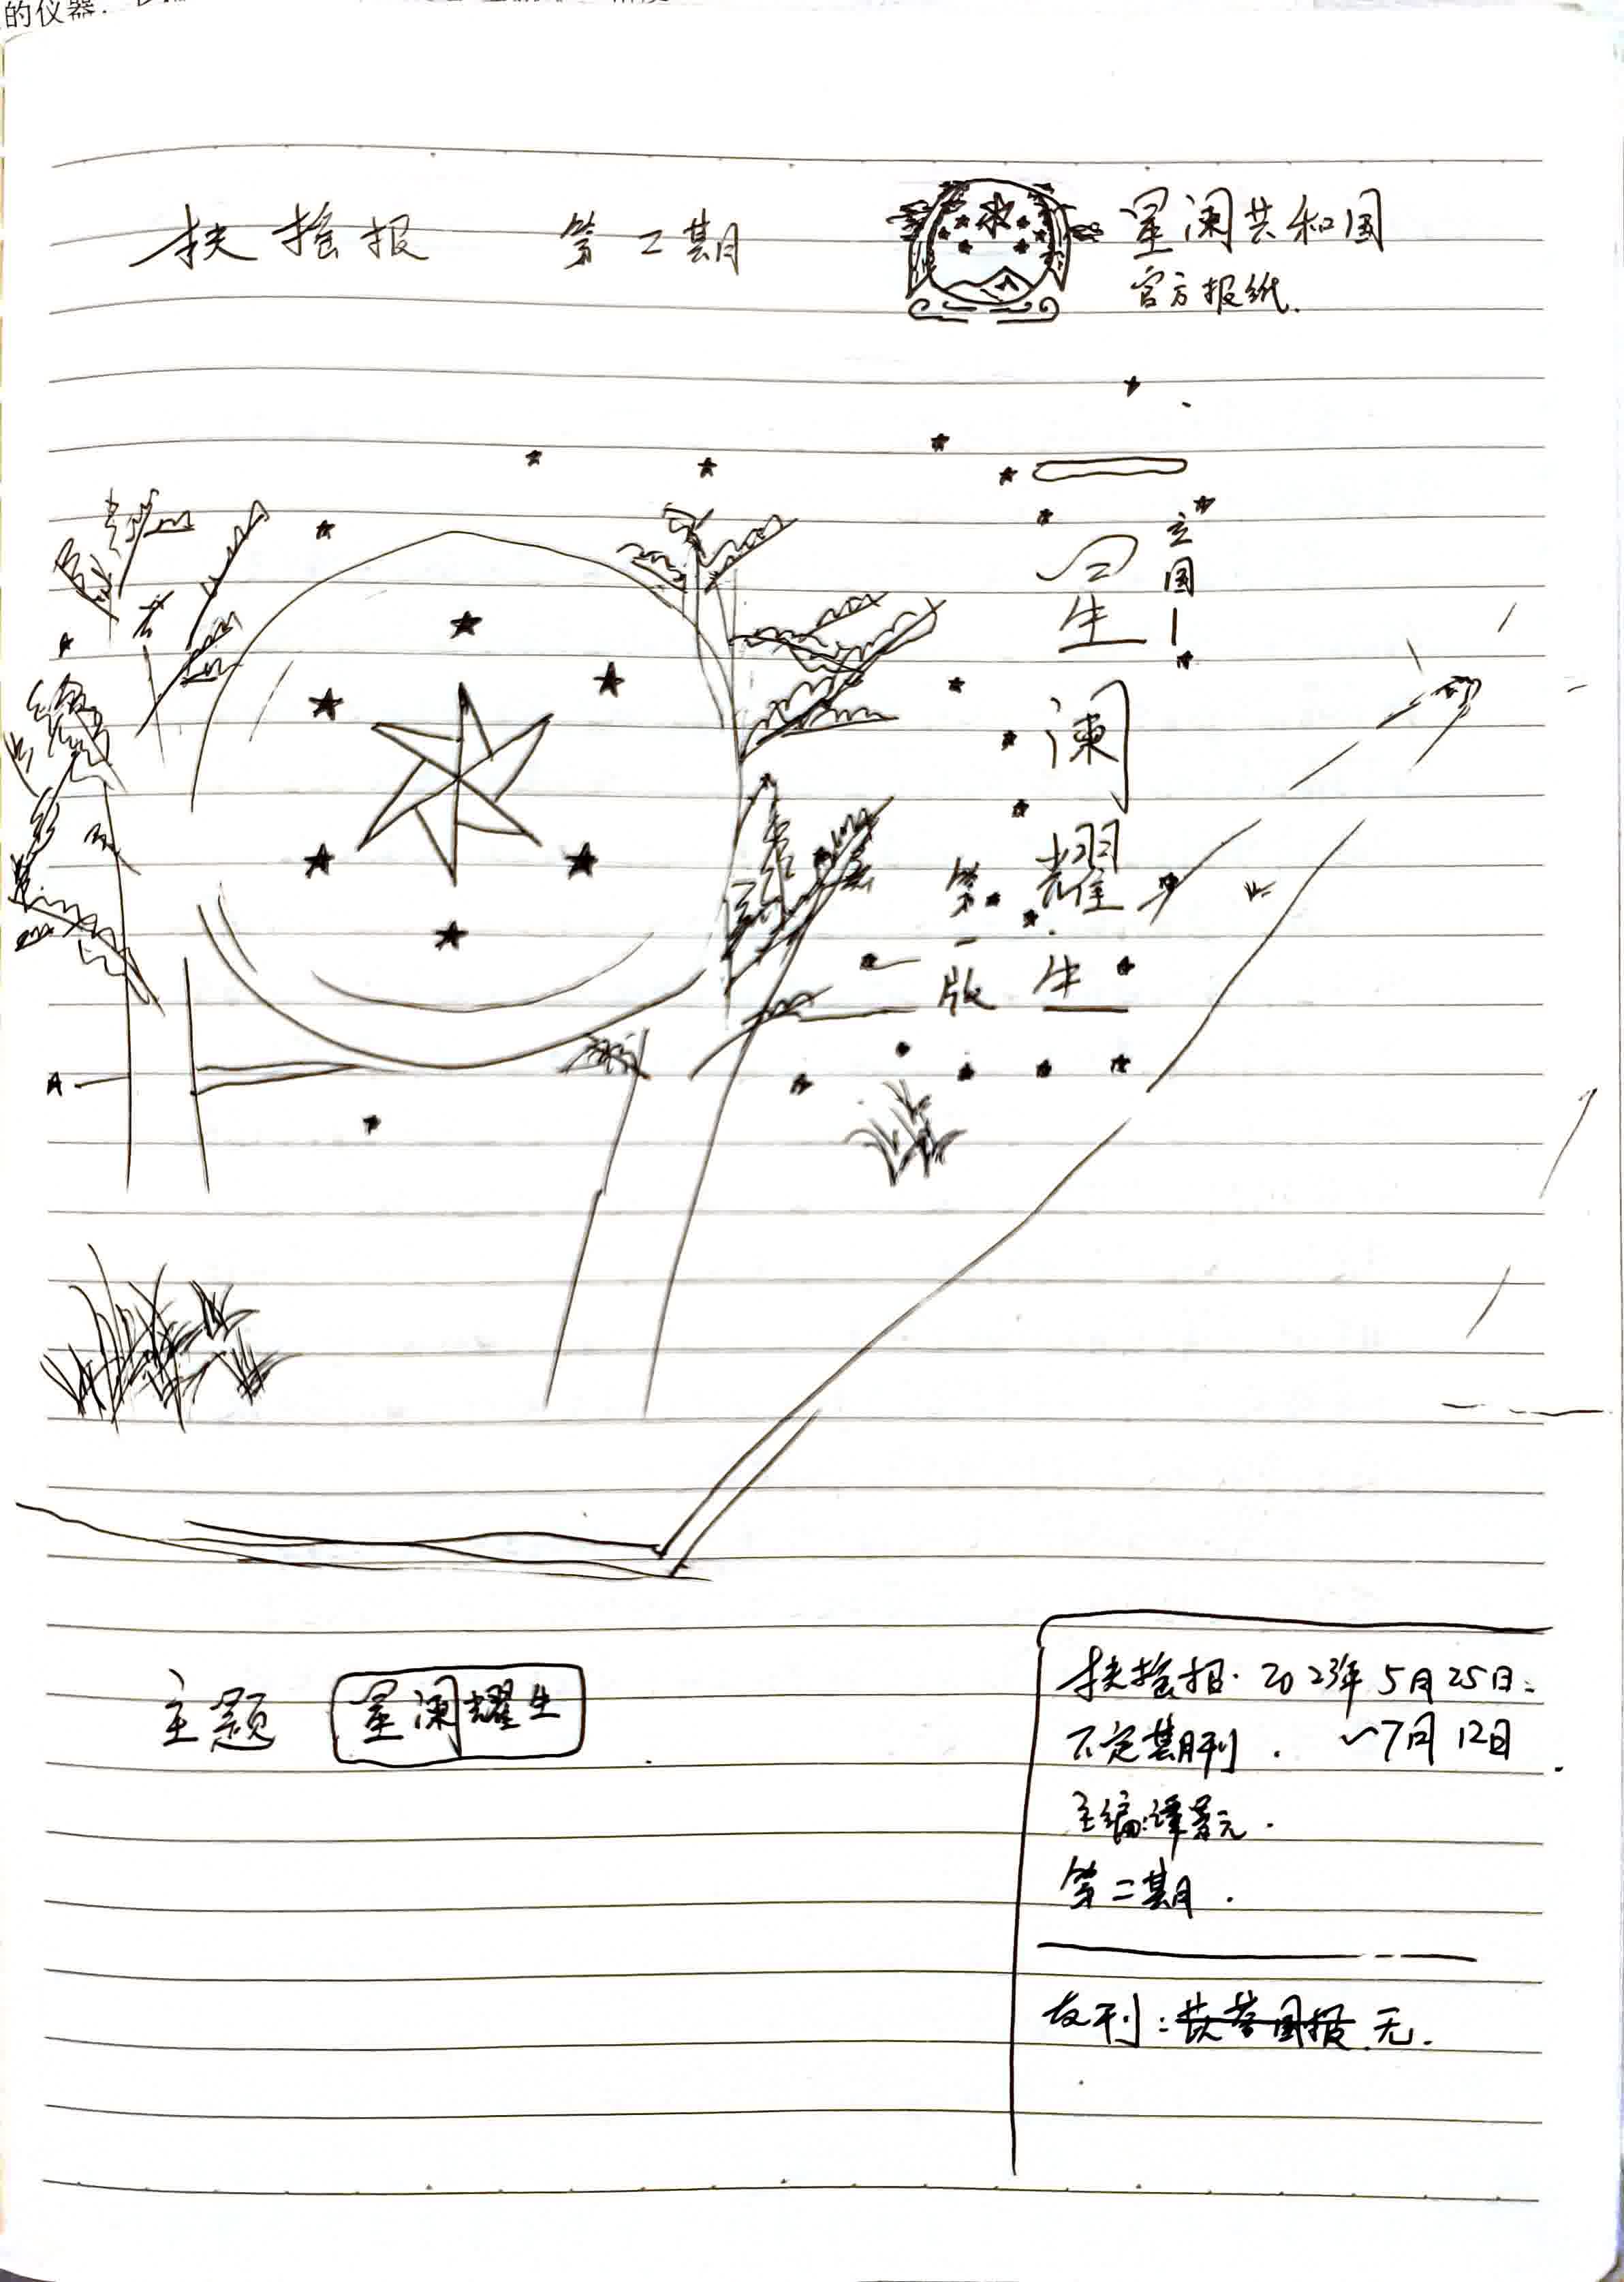 的仪器.
扶摇报 第二期
星澜共和国
官方报纸.
立国一
星澜耀生
第一版
主题 星澜耀生
扶摇报. 2023年5月25日
不定期刊. ~7月12日
主编:译
第二期.
友刊: 无.